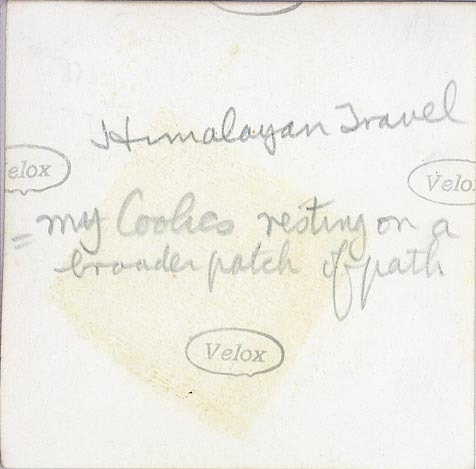 Himalayan Travel
elox
Velo
= my Coolies resting on a
broader patch of path
Velox